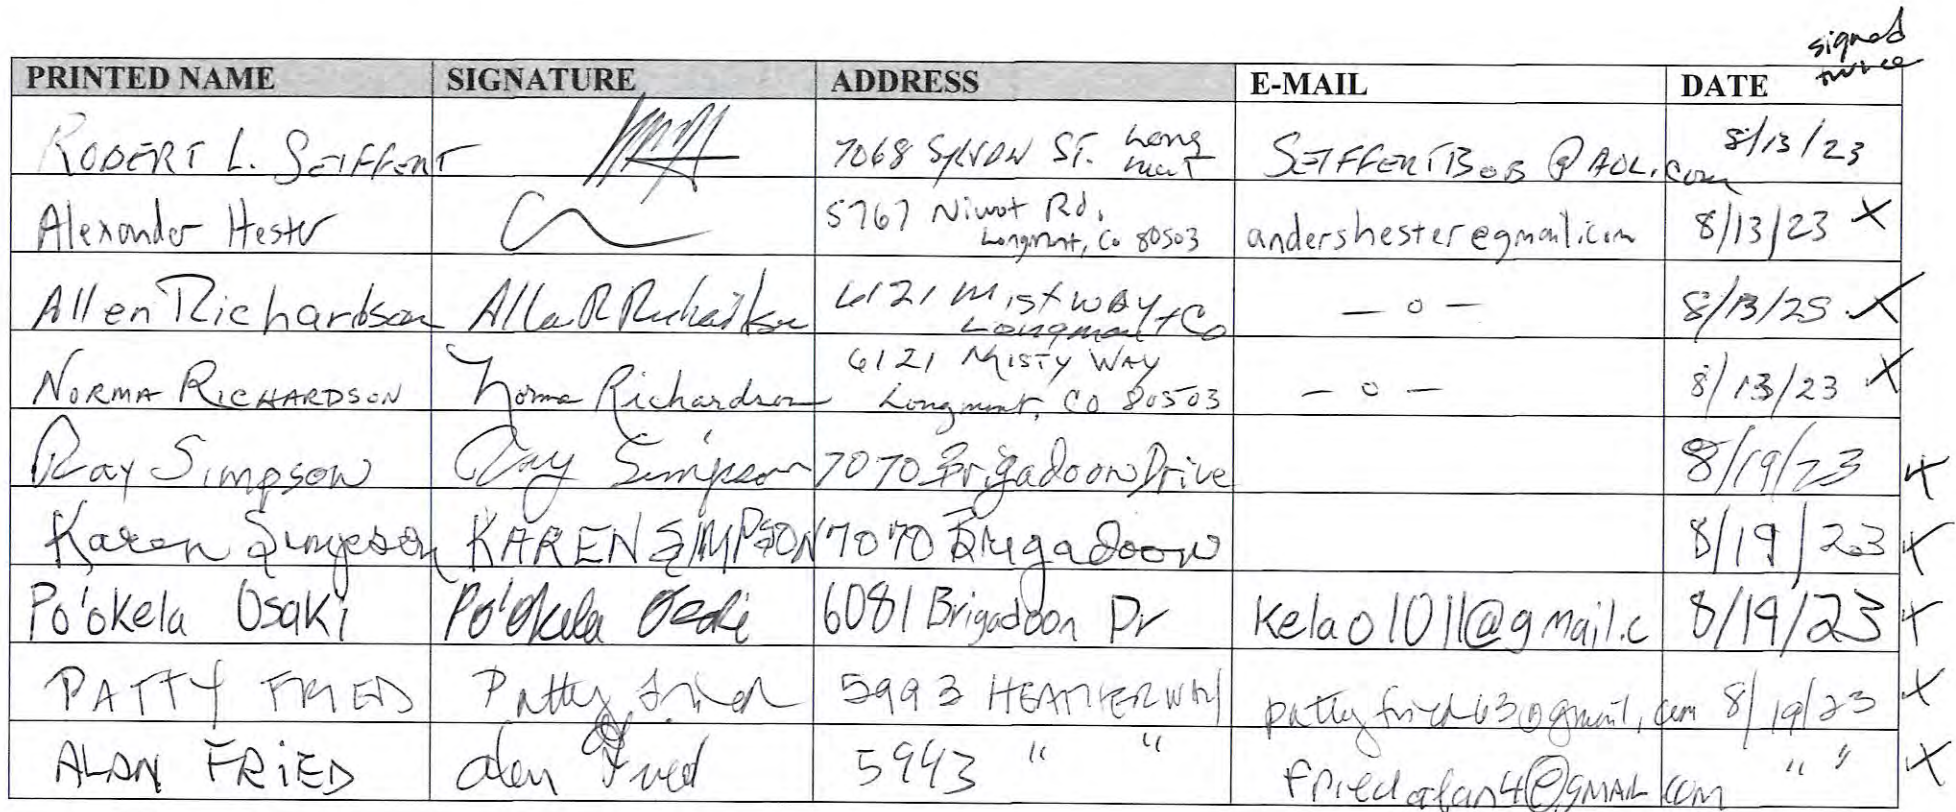 signed
twice
PRINTED NAME SIGNATURE ADDRESS E-MAIL DATE
ROBERT L. SEIFFERT 7068 SYLVON ST. Long mont SEIFFERTBOB@AOL.com 8/13/23
Alexander Hester 5767 Niwot Rd,
Longmont, Co 80503 andershester@gmail.com 8/13/23 X
Allen Richardson Allen R Richardson 6121 Misty WAY
Longmont Co — o — 8/13/23 X
NORMA RICHARDSON Norma Richardson 6121 MISTY WAY
Longmont, CO 80503 — o — 8/13/23 X
Ray Simpson Ray Simpson 7070 Brigadoon Drive 8/19/23 X
Karen Simpson KAREN SIMPSON 7070 Brigadoon 8/19/23 X
Po'okela Osaki Po'okela Osaki 6081 Brigadoon Dr kelao1011@gmail.c 8/19/23 X
PATTY FRIED Patty Fried 5993 HEATHERWAY pattyfried63@gmail.com 8/19/23 X
ALAN FRiED alan Fried 5943 " " friedalan4@gmail.com " " X